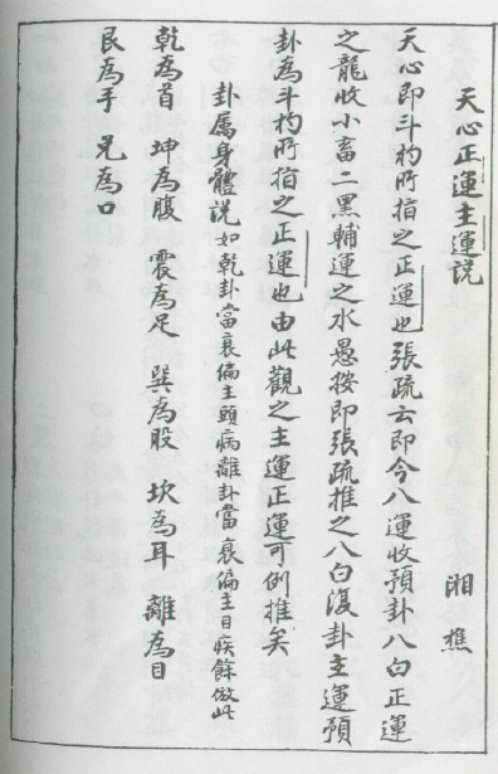 天心正運主運說
湘樵
天心即斗杓所指之正運也張疏云即今八運收預卦八白正運
之龍收小畜二黑輔運之水愚按即張疏推之八白復卦主運預
卦為斗杓所指之正運也由此觀之主運正運可例推矣
卦屬身體說如乾卦當衰偏主頭病離卦當衰偏主目疾餘倣此
乾為首 坤為腹 震為足 巽為股 坎為耳 離為目
艮為手 兌為口